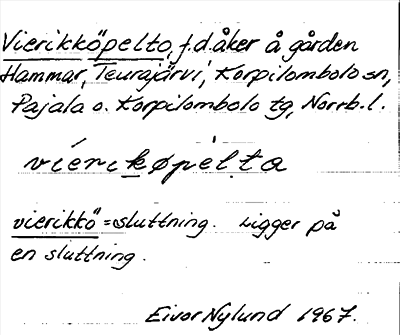 Vierikköpelto, f.d. åker å gården
Hammar, Teurajärvi, Korpilombolo sn,
Pajala o. Korpilombolo tg, Norrb. l.
víerikøpèlta
vierikkö = sluttning. Ligger på
en sluttning.
Eivor Nylund 1967.